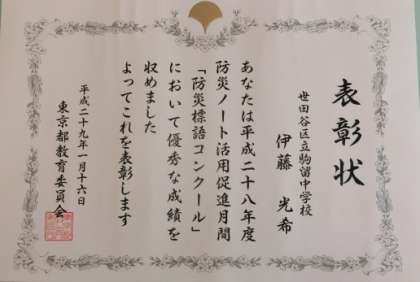 表彰状
世田谷区立駒留中学校
伊藤 光希
あなたは平成二十八年度
防災ノート活用促進月間
「防災標語コンクール」
において優秀な成績を
収めました
よってこれを表彰します
平成二十九年一月十六日
東京都教育委員会